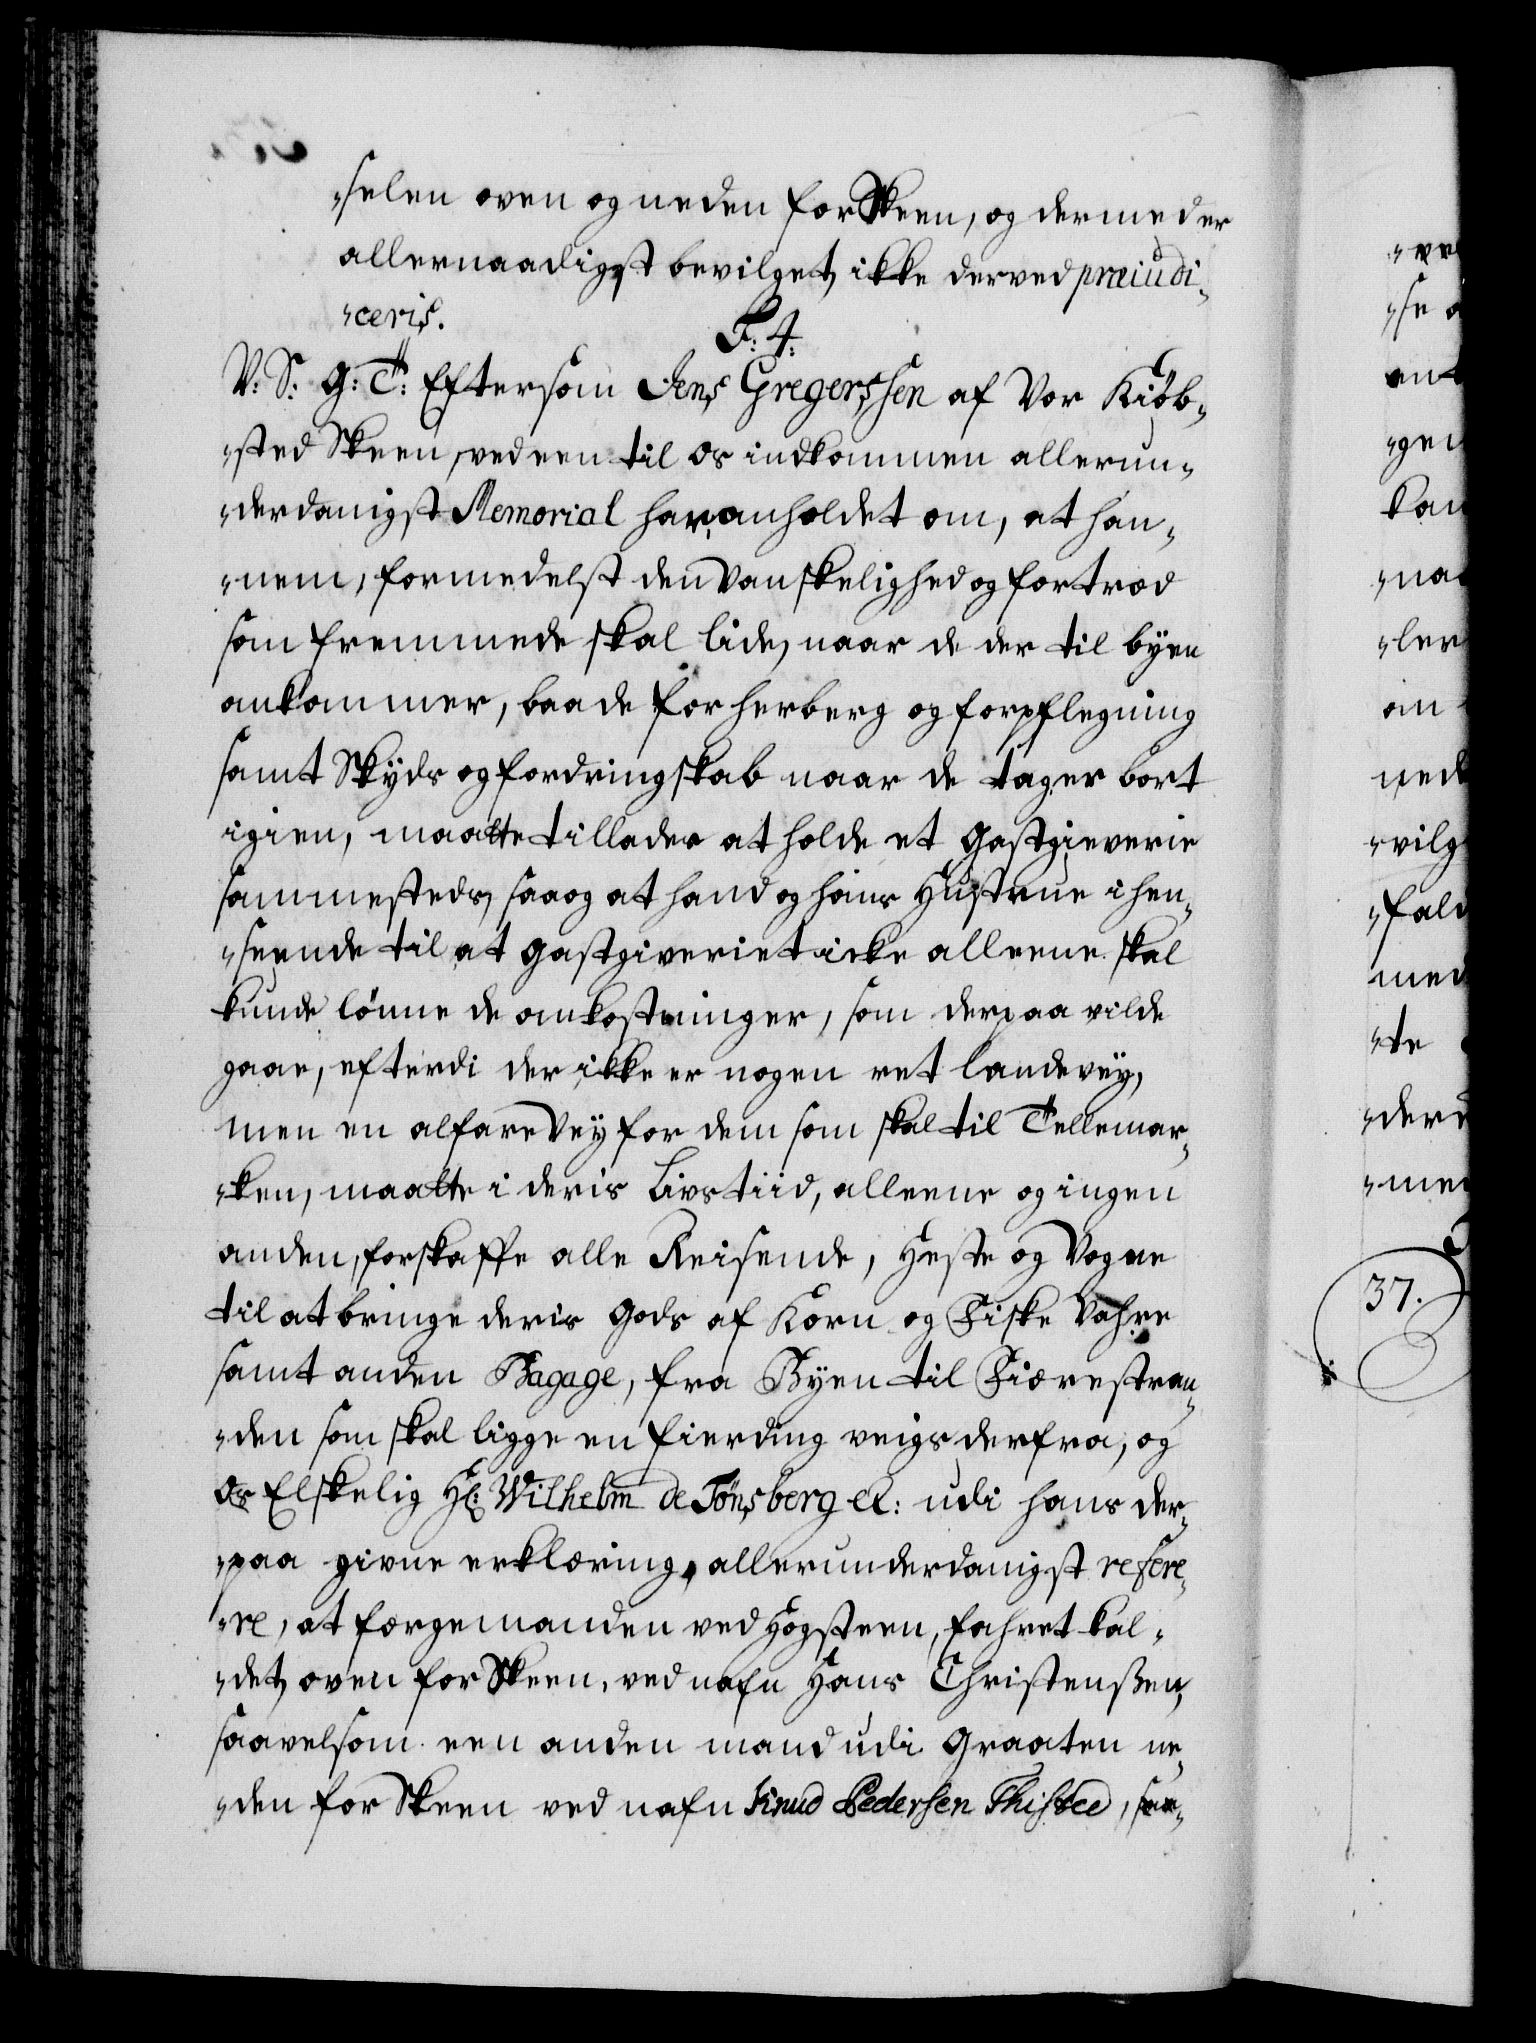 „selen oven og neden for Skeen, og dermed er
allernaadigst bevilget, ikke derved præiudi-
„ceris.
F: 4.
V: S: G: T: Eftersom Jens Gregerssen af Vor Kiøb-
„sted Skeen, ved een til os indkommen allerun-
„derdanigst Memorial har anholdet om, at han-
„nem, formedelst den Vanskelighed og fortræd
som fremmede skal lide, naar de der til byen
ankommer, baade for herberg og forpflegning
samt Skyds og fordringskab naar de tager bort
igien, maatte tillades at holde et Gastgieverie
sammesteds, saa og at hand og hans Hustrue i hen-
„seende til at Gastgiveriet icke alleene skal
kunde lönne de omkostninger, som derpaa vilde
gaae, efterdi der ikke er nogen ret landevey,
men en alfare Vey for dem som skal til Tellemar-
„ken, maatte i deris Livs tiid, alleene og ingen
anden, forskaffe alle Reisende, Heste og Vogne
til at bringe deris Gods af Korn og Fiske Vahre
samt anden Bagage, fra Byen til Fiærestran-
„den som skal ligge en fierding veigs derfra, og
Os Elskelig H: Wilhelm de Tönsberg &: udi hans der-
„paa givne erklæring, allerunderdanigst refere-
„re, at færgemanden ved Hogsteen, fahret kal-
„det, oven for Skeen, ved nafn Hans Christenßen,
saavelsom een anden mand udi Graaten ne-
„den for Skeen ved nafn Knud Pedersen Thisted, saa-
„ve
„se
ent
„gen
kan
„naa
„ler
an
ned
„vilg
„fald
med
„te
„derd
„me
37.